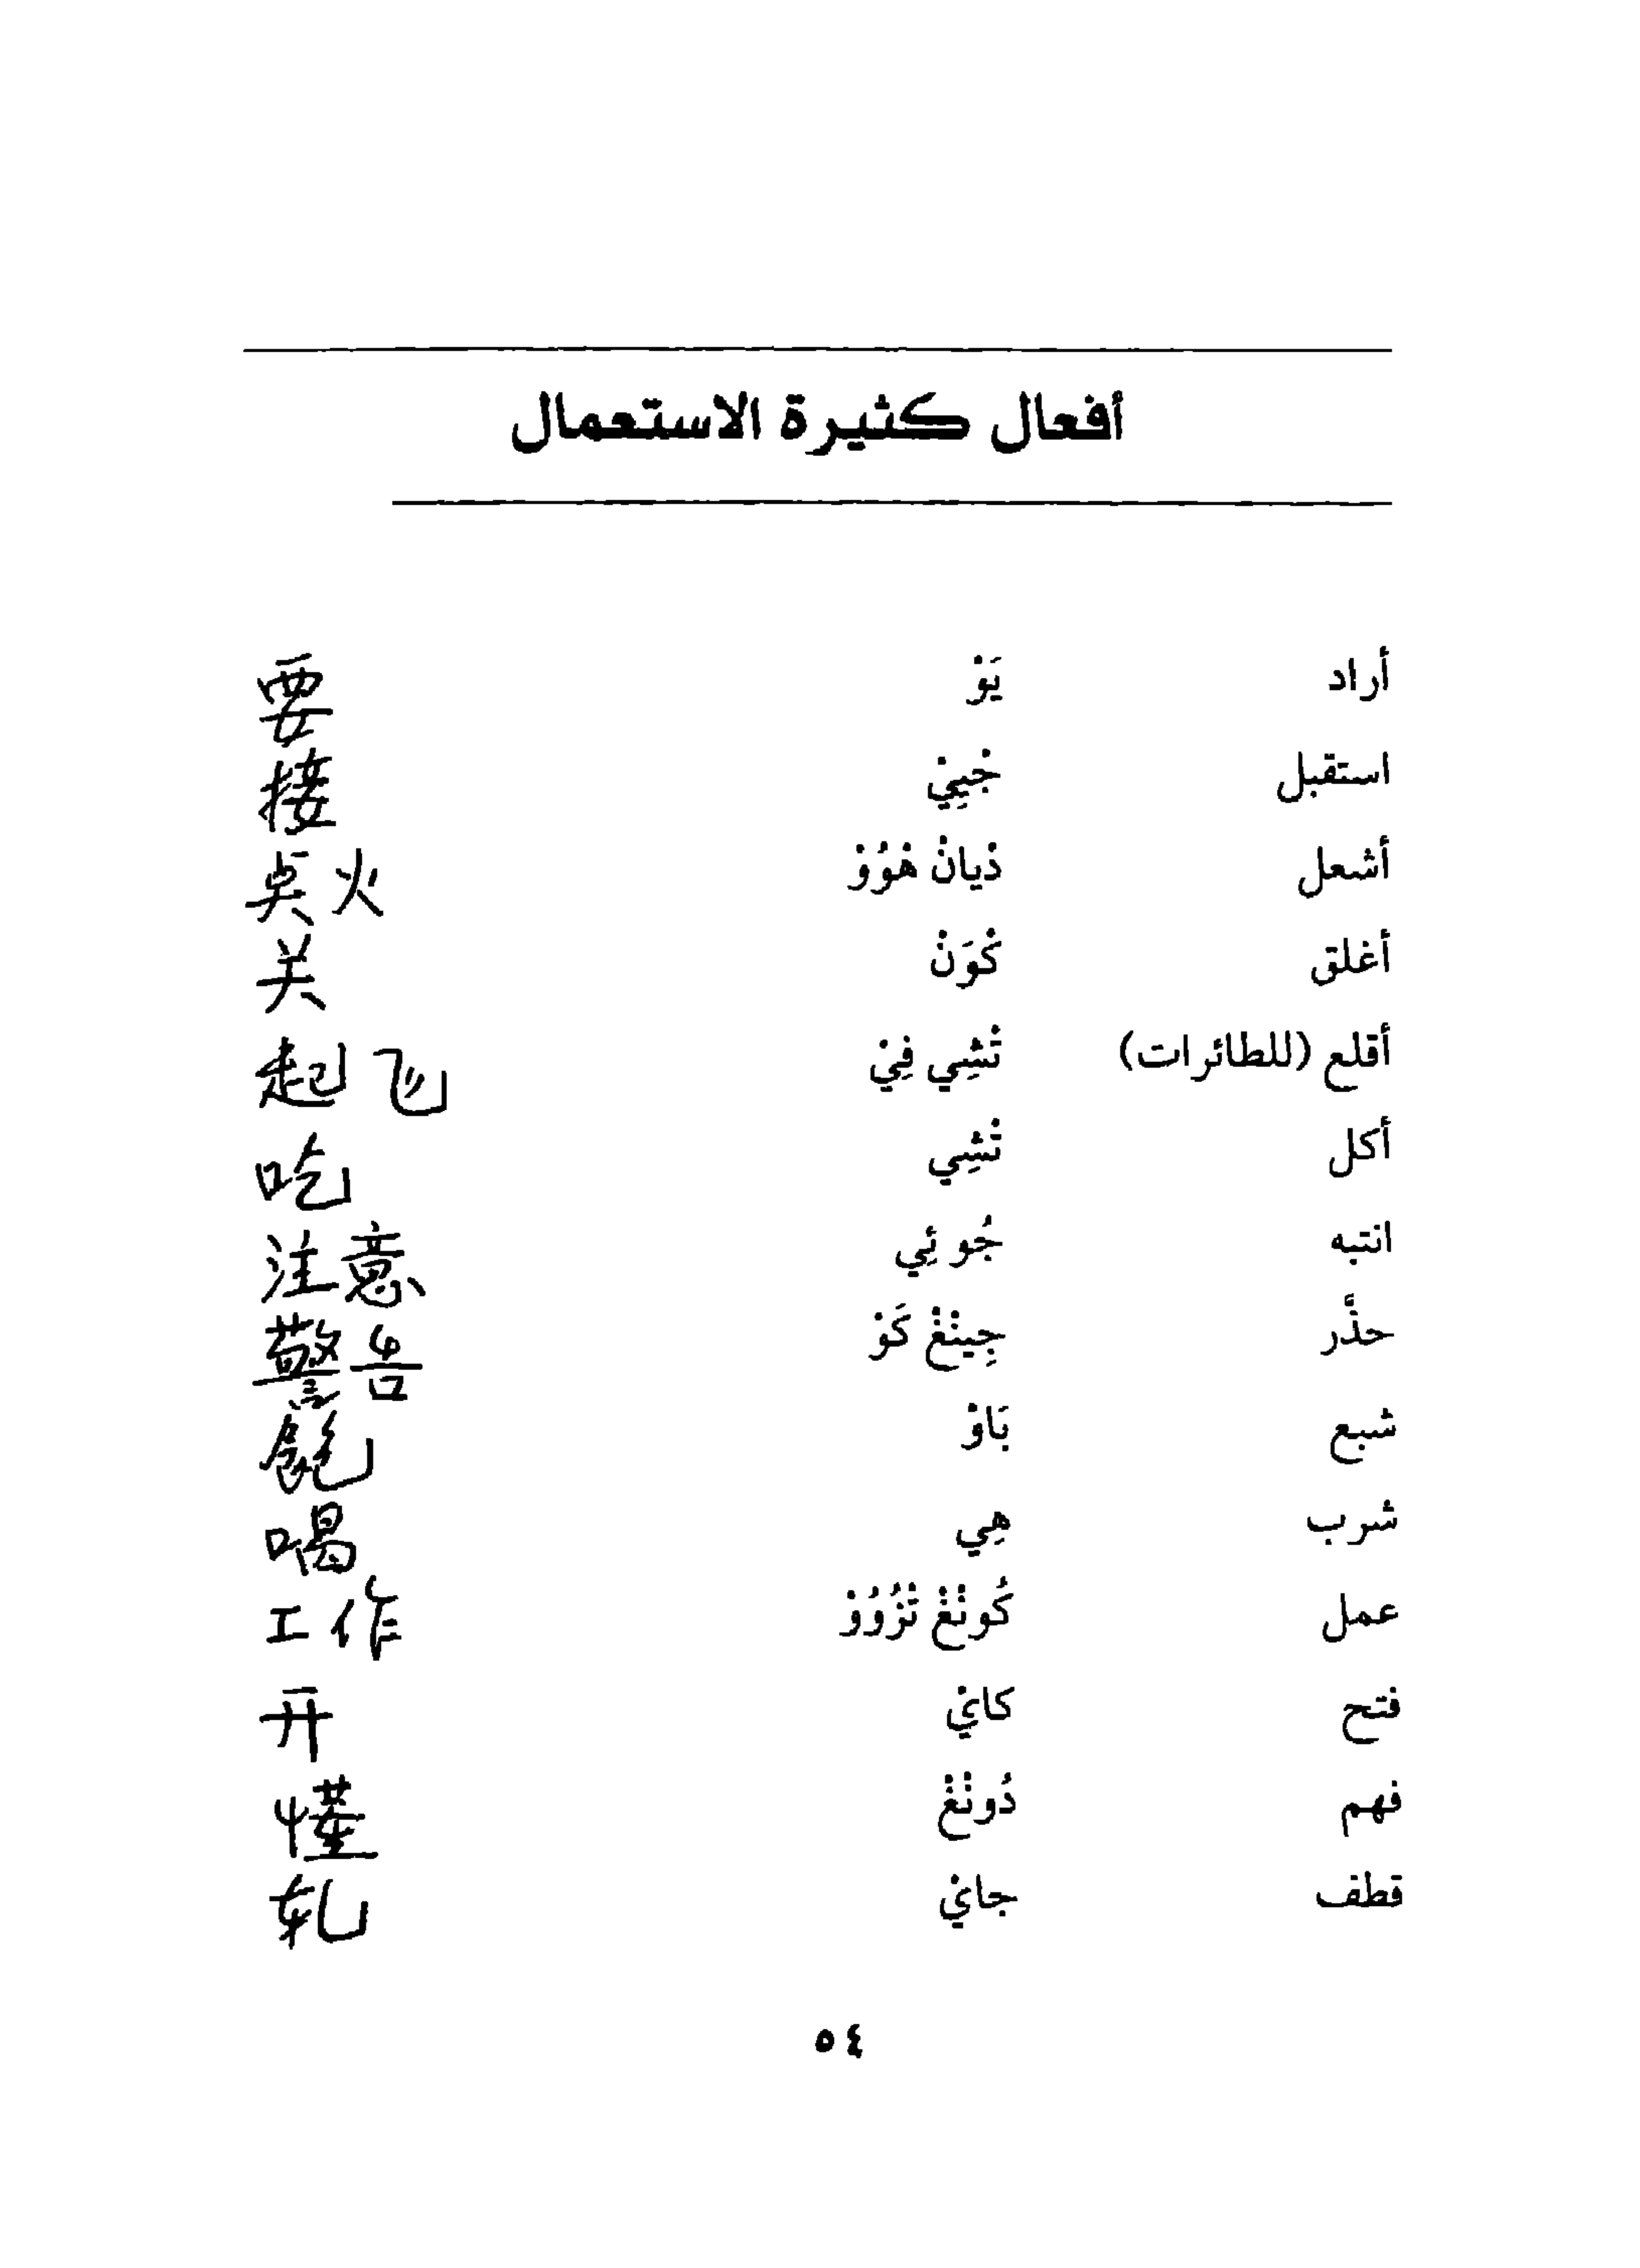 أفعال كثيرة الاستعمال
أراد يَوْ 要
استقبل جْيِيْ 接
أشعل دْيانْ هْوُوْ 点火
أغلق كْوَنْ 关
أقلع (للطائرات) تْشِي فِيْ 起飞
أكل تْشِي 吃
انتبه جُو ئِي 注意
حذَّر جِينْغْ كَوْ 警告
شبع بَاوْ 饱
شرب هِي 喝
عمل كُونْغْ تْزُوُوْ 工作
فتح كايْ 开
فهم دُونْغْ 懂
قطف جايْ 轧
٥٤